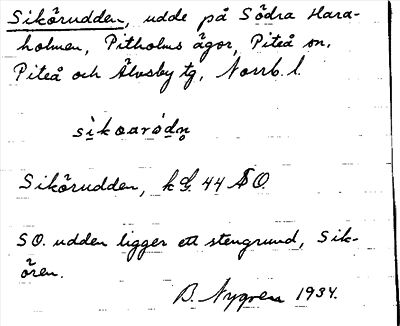 Sikörudden, udde på Södra Hara-
holmen, Pitholms ägor, Piteå sn,
Piteå och Älvsby tg, Norrb. l.
sikoaródn̥
Sikörudden, k 44 SO.
SO. udden ligger ett stengrund, Sik-
ören.
B. Nygren 1934.